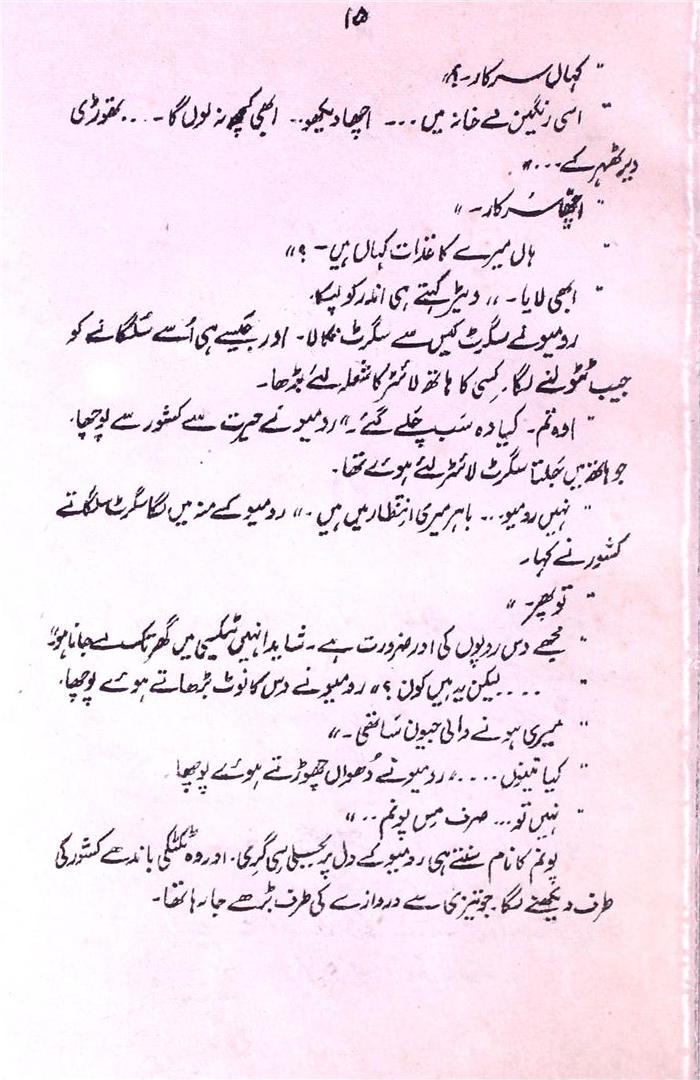 ۱۵
" کہاں سرکار۔؟"
" اسی رنگین مے خانہ میں ... اچھا دیکھو.. ابھی کچھ نہ لوں گا۔... تھوڑی
دیر ٹھہر کے...."
" اچھّا سرکار۔"
" ہاں میرے کاغذات کہاں ہیں۔؟"
" ابھی لایا۔" ویٹر کہتے ہی اندر کو لپکا۔
رومیو نے سگرٹ کیس سے سگرٹ نکالا۔ اور جیسے ہی اُسے سُلگانے کو
جیب ٹٹولنے لگا۔ کسی کا ہاتھ لائٹر کا شعلہ لئے بڑھا۔
" اوہ تم۔ کیا وہ سَب چلے گئے۔" رومیو نے حیرت سے کشور سے پوچھا۔
جو ہاتھ میں جَلتا سگرٹ لائٹر لئے ہوئے تھا۔
" نہیں رومیو... باہر میری انتظار میں ہیں۔" رومیو کے منہ میں لگا سگرٹ سلگاتے
کشور نے کہا۔
" تو پھر۔"
" مجھے دس روپوں کی اور ضرورت ہے۔ شاید انہیں ٹیکسی میں گھر تک لے جانا ہو۔"
" .... لیکن یہ ہیں کون؟" رومیو نے دس کا نوٹ بڑھاتے ہوئے پوچھا۔
" میری ہونے والی جیون سَاتھی۔"
" کیا تینوں ....." رومیو نے دُھواں چھوڑتے ہوئے پوچھا۔
" نہیں تو... صرف مِس پونم.."
پونم کا نام سنتے ہی رومیو کے دل پر بجلی سی گری۔ اور وہ ٹکٹکی باندھے کشور کی
طرف دیکھنے لگا۔ جو تیزی سے دروازے کی طرف بڑھے جا رہا تھا۔